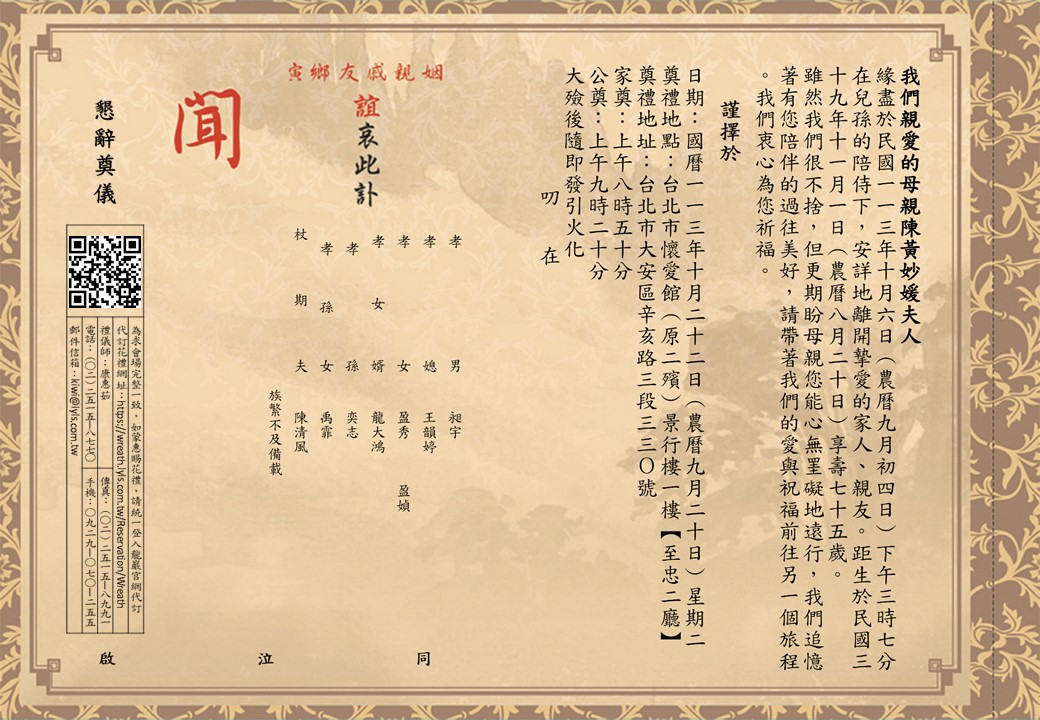 我們親愛的母親陳黃妙媛夫人
緣盡於民國一一三年十月六日（農曆九月初四日）下午三時七分
在兒孫的陪侍下，安詳地離開摯愛的家人、親友。距生於民國三
十九年十一月一日（農曆八月二十日）享壽七十五歲。
雖然我們很不捨，但更期盼母親您能心無罣礙地遠行，我們追憶
著有您陪伴的過往美好，請帶著我們的愛與祝福前往另一個旅程
。我們衷心為您祈福。
謹擇於
日期：國曆一一三年十月二十二日（農曆九月二十日）星期二
奠禮地點：台北市懷愛館（原二殯）景行樓一樓【至忠二廳】
奠禮地址：台北市大安區辛亥路三段三三〇號
家奠：上午八時五十分
公奠：上午九時二十分
大殮後隨即發引火化
叨在
姻親戚友鄉寅
誼哀此訃
聞
孝男 昶宇
孝媳 王韻婷
孝女 盈秀 盈媜
孝女婿 龍大鴻
孝孫 奕志
孝孫女 禹霏
杖期夫 陳清風
族繁不及備載
同泣啟
懇辭奠儀
為求會場完整一致，如蒙惠賜花禮，請統一登入龍巖官網代訂
代訂花禮網址：https://wreath.lyls.com.tw/Reservation/Wreath
禮儀師：康惠茹
傳真：（〇二）二五一五–八九九一
電話：（〇二）二五一五–八七七〇
手機：〇九二九–〇七〇–二五五
郵件信箱：kiwi@lyls.com.tw